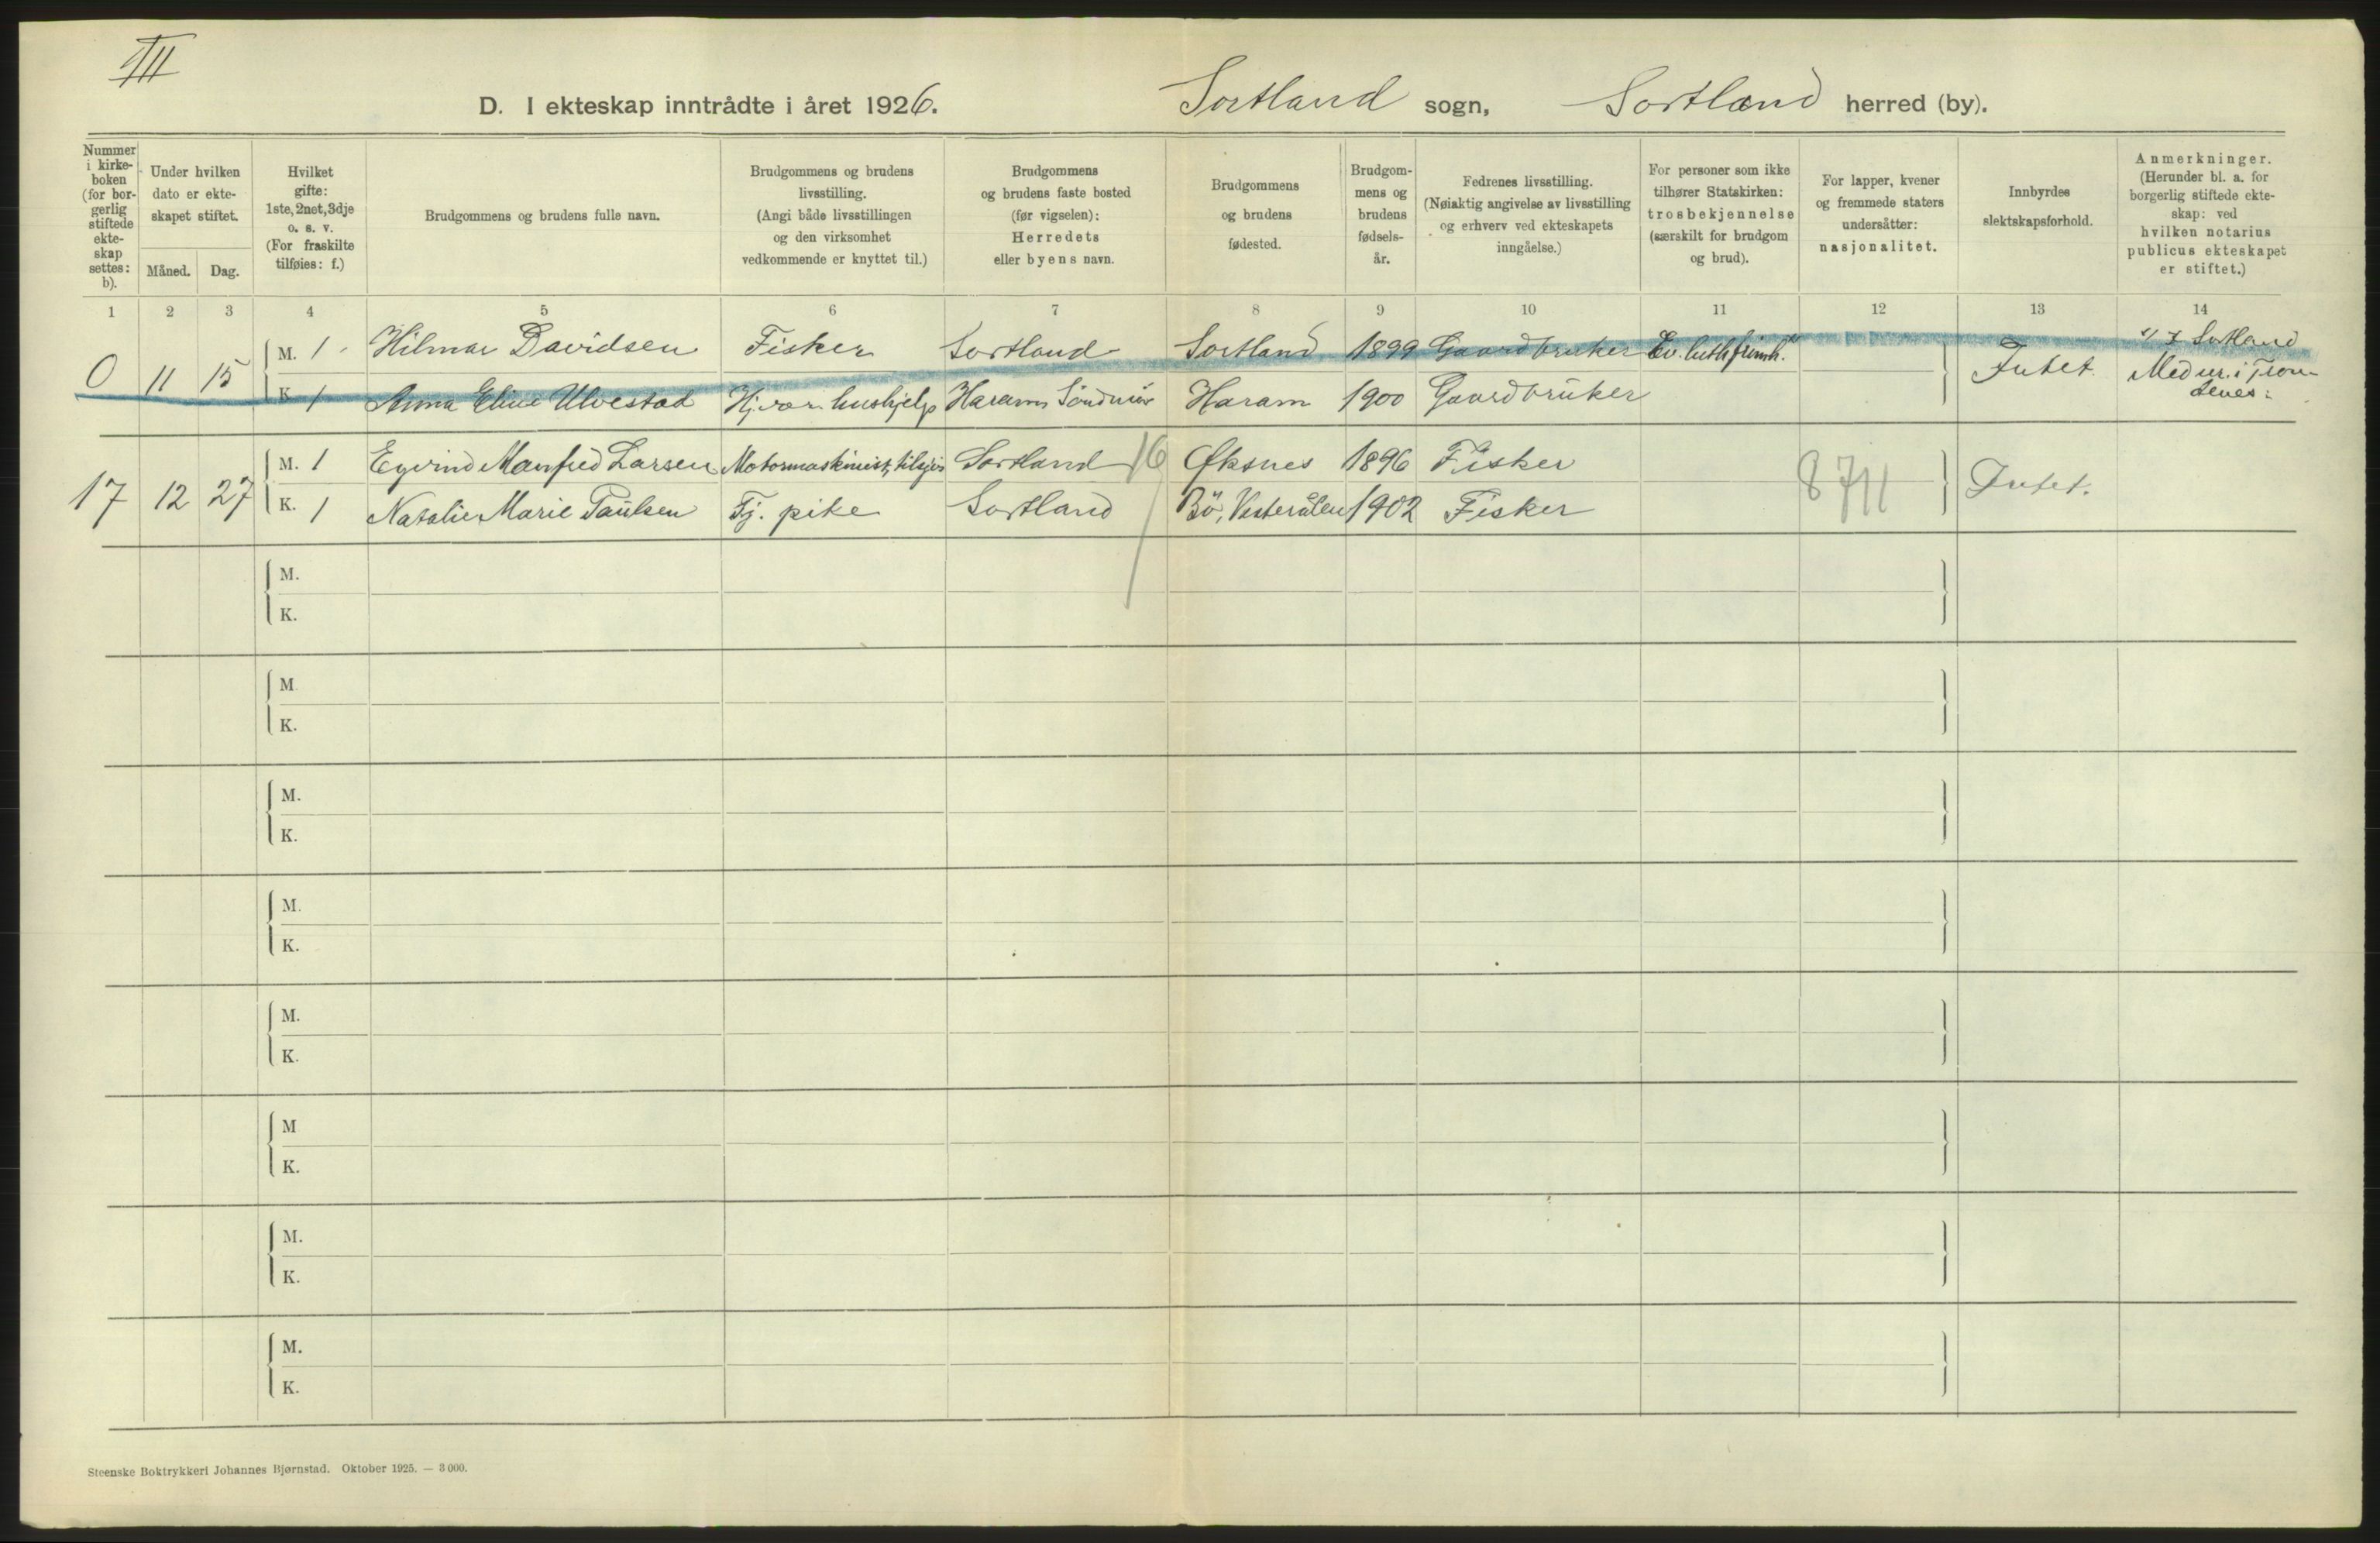 III
D. I ekteskap inntrådte i året 1926. Sortland sogn, Sortland herred (by).
Nummer i kirke- boken (for bor- gerlig stiftede ekte- skap settes: b).
Under hvilken dato er ekte- skapet stiftet.
Måned. Dag.
Hvilket gifte: 1ste, 2net, 3dje o. s. v. (For fraskilte tilføies: f.)
Brudgommens og brudens fulle navn.
Brudgommens og brudens livsstilling. (Angi både livsstillingen og den virksomhet vedkommende er knyttet til.)
Brudgommens og brudens faste bosted (før vigselen): Herredets eller byens navn.
Brudgommens og brudens fødested.
Brudgom- mens og brudens fødsels- år.
Fedrenes livsstilling. (Nøiaktig angivelse av livsstilling og erhverv ved ekteskapets inngåelse.)
For personer som ikke tilhører Statskirken: trosbekjennelse (særskilt for brudgom og brud).
For lapper, kvener og fremmede staters undersåtter: nasjonalitet.
Innbyrdes slektskapsforhold.
Anmerkninger. (Herunder bl. a. for borgerlig stiftede ekte- skap: ved hvilken notarius publicus ekteskapet er stiftet.)
1 2 3 4 5 6 7 8 9 10 11 12 13 14
0 11 15 M. 1 Hilmar Davidsen Fisker Sortland Sortland 1899 Gaardbruker Ev. luth frimh. Intet. Sortland
K. 1 Anna Eline Ulvestad Hj. vær. hushjelp Haram, Søndmør Haram 1900 Gaardbruker Med nr. i Tron-
denes.
17 12 27 M. 1 Eyvind Manfred Larsen Motormaskinist, tilsjøs Sortland 16 Øksnes 1896 Fisker 8711 Intet.
K. 1 Natalie Marie Paulsen Tj. pike Sortland Bö, Vesterålen 1902 Fisker
M.
K.
M.
K.
M.
K.
M.
K.
M.
K.
M
K.
M.
K.
M.
K.
Steenske Boktrykkeri Johannes Bjørnstad. Oktober 1925. — 3 000.